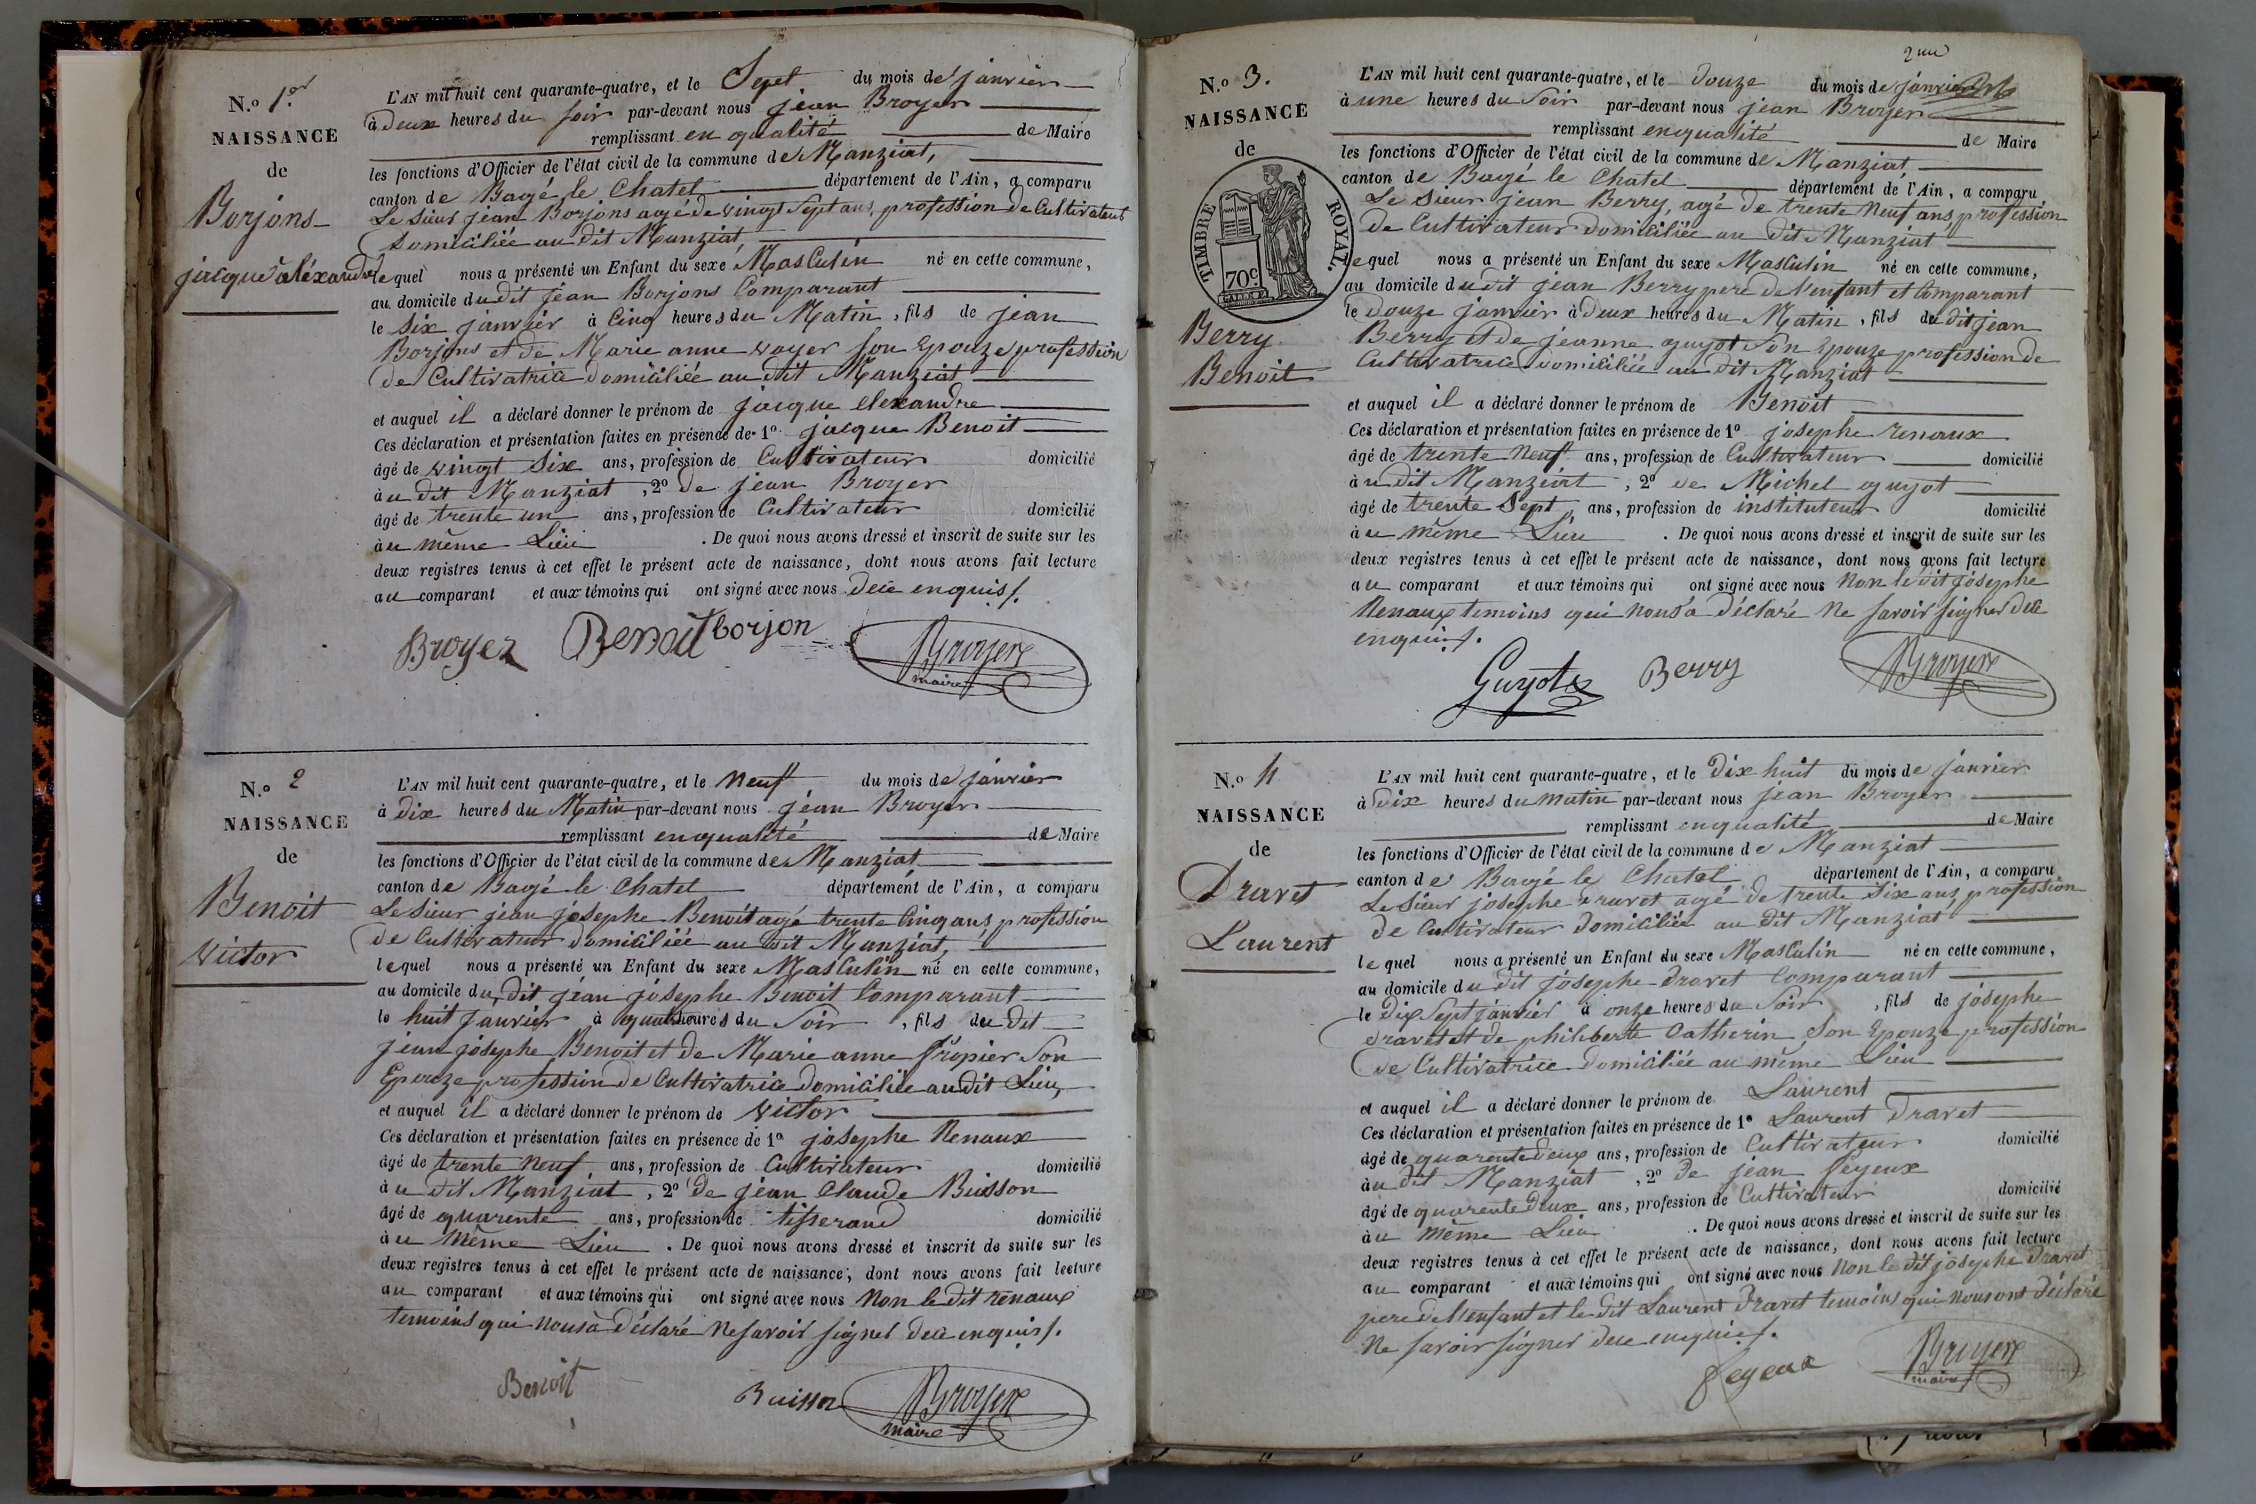 N.o 1.er
NAISSANCE
de
Borjons
jacque aléxandre
L'AN mil huit cent quarante-quatre, et le Sept du mois de janvier
à deux heures du soir par-devant nous jean Broyer
remplissant en qualité de Maire
les fonctions d'Officier de l'état civil de la commune de Manziat,
canton de Bagé le Chatel département de l'Ain, a comparu
Le Sieur jean Borjons agé de vingt Sept ans, profession de Cultivateur
domiciliée au dit Manziat
lequel nous a présenté un Enfant du sexe Masculin né en cette commune,
au domicile du dit jean Borjons Comparant
le Six janvier à Cinq heures du Matin, fils de jean
Borjons et de Marie anne voyer son Epouze profession
de Cultivatrice domiciliée au dit Manziat
et auquel il a déclaré donner le prénom de jacque alexandre
Ces déclaration et présentation faites en présence de 1o jacque Benoit
âgé de vingt Six ans, profession de Cultivateur domicilié
àu dit Manziat, 2o de jean Broyer
âgé de trente un ans, profession de Cultivateur domicilié
àu même Lieu. De quoi nous avons dressé et inscrit de suite sur les
deux registres tenus à cet effet le présent acte de naissance, dont nous avons fait lecture
au comparant et aux témoins qui ont signé avec nous dece enquis/.
Broyer Benoit borjon Broyer
maire
N.o 2
NAISSANCE
de
Benoit
victor
L'AN mil huit cent quarante-quatre, et le Neuf du mois de janvier
à dix heures du Matin par-devant nous jean Broyer
remplissant enqualité de Maire
les fonctions d'Officier de l'état civil de la commune de Manziat
canton de Bagé le Chatel département de l'Ain, a comparu
Le Sieur jean josephe Benoit agé trente Cinq ans, profession
de Cultivateur domiciliée au dit Manziat,
lequel nous a présenté un Enfant du sexe Masculin né en cette commune,
au domicile du dit jean josephe Benoit Comparant
le huit Janvier à quatre heures du Soir, fils du dit
jean josephe Benoit et de Marie anne fropier Son
Epouze profession de Cultivatrice domiciliée au dit Lieu,
et auquel il a déclaré donner le prénom de victor
Ces déclaration et présentation faites en présence de 1o josephe Renaux
âgé de trente Neuf ans, profession de Cultivateur domicilié
àu dit Manziat, 2o de jean Claude Buisson
âgé de quarente ans, profession de tisserand domicilié
àu Même Lieu. De quoi nous avons dressé et inscrit de suite sur les
deux registres tenus à cet effet le présent acte de naissance, dont nous avons fait lecture
au comparant et aux témoins qui ont signé avec nous Non le dit renaux
temoins qui nous à déclaré Ne savoir signer dece enquis/.
Benoit Buisson Broyer
maire
2me
N.o 3.
NAISSANCE
de
TIMBRE ROYAL.
70c
Berry
Benoit
L'AN mil huit cent quarante-quatre, et le douze du mois de janvier
à une heures du Soir par-devant nous jean Broyer
remplissant enqualité de Maire
les fonctions d'Officier de l'état civil de la commune de Manziat
canton de Bagé le Chatel département de l'Ain, a comparu
Le Sieur jean Berry, agé de trente Neuf ans, profession
de Cultivateur domiciliée au dit Manziat
lequel nous a présenté un Enfant du sexe Masculin né en cette commune,
au domicile du dit jean Berry pere de l'enfant et Comparant
le douze janvier à deux heures du Matin, fils du dit jean
Berry et de jeanne guyot Son Epouze profession de
Cultivatrice domiciliée au dit Manziat
et auquel il a déclaré donner le prénom de Benoit
Ces déclaration et présentation faites en présence de 1o josephe renaux
âgé de trente Neuf ans, profession de Cultivateur domicilié
àu dit Manziat, 2o de Michel guyot
âgé de trente Sept ans, profession de instituteur domicilié
àu même Lieu. De quoi nous avons dressé et inscrit de suite sur les
deux registres tenus à cet effet le présent acte de naissance, dont nous avons fait lecture
au comparant et aux témoins qui ont signé avec nous Non le dit josephe
Renaux temoins qui nous a déclaré Ne savoir signer dece
enquis/.
Guyot Berry Broyer
N.o 4
NAISSANCE
de
Dravet
Laurent
L'AN mil huit cent quarante-quatre, et le Dix huit du mois de janvier
à Dix heures du matin par-devant nous jean Broyer
remplissant enqualité de Maire
les fonctions d'Officier de l'état civil de la commune de Manziat
canton de Bagé le Chatel département de l'Ain, a comparu
Le Sieur josephe dravet agé de trente Six ans, profession
de Cultivateur domiciliée au dit Manziat
lequel nous a présenté un Enfant du sexe Masculin né en cette commune,
au domicile du dit josephe dravet Comparant
le dix Sept janvier à onze heures du Soir, fils de josephe
dravet et de philiberte Catherin Son Epouze profession
de Cultivatrice domiciliée au même Lieu
et auquel il a déclaré donner le prénom de Laurent
Ces déclaration et présentation faites en présence de 1o Laurent Dravet
âgé de quarente deux ans, profession de Cultivateur domicilié
àu dit Manziat, 2o de jean feyeux
âgé de quarente deux ans, profession de Cultivateur domicilié
àu même Lieu. De quoi nous avons dressé et inscrit de suite sur les
deux registres tenus à cet effet le présent acte de naissance, dont nous avons fait lecture
au comparant et aux témoins qui ont signé avec nous Non le dit josephe Dravet
pere de l'enfant et le dit Laurent Dravet temoins qui nous ont déclaré
Ne savoir signer dece enquis/.
feyeux Broyer
maire